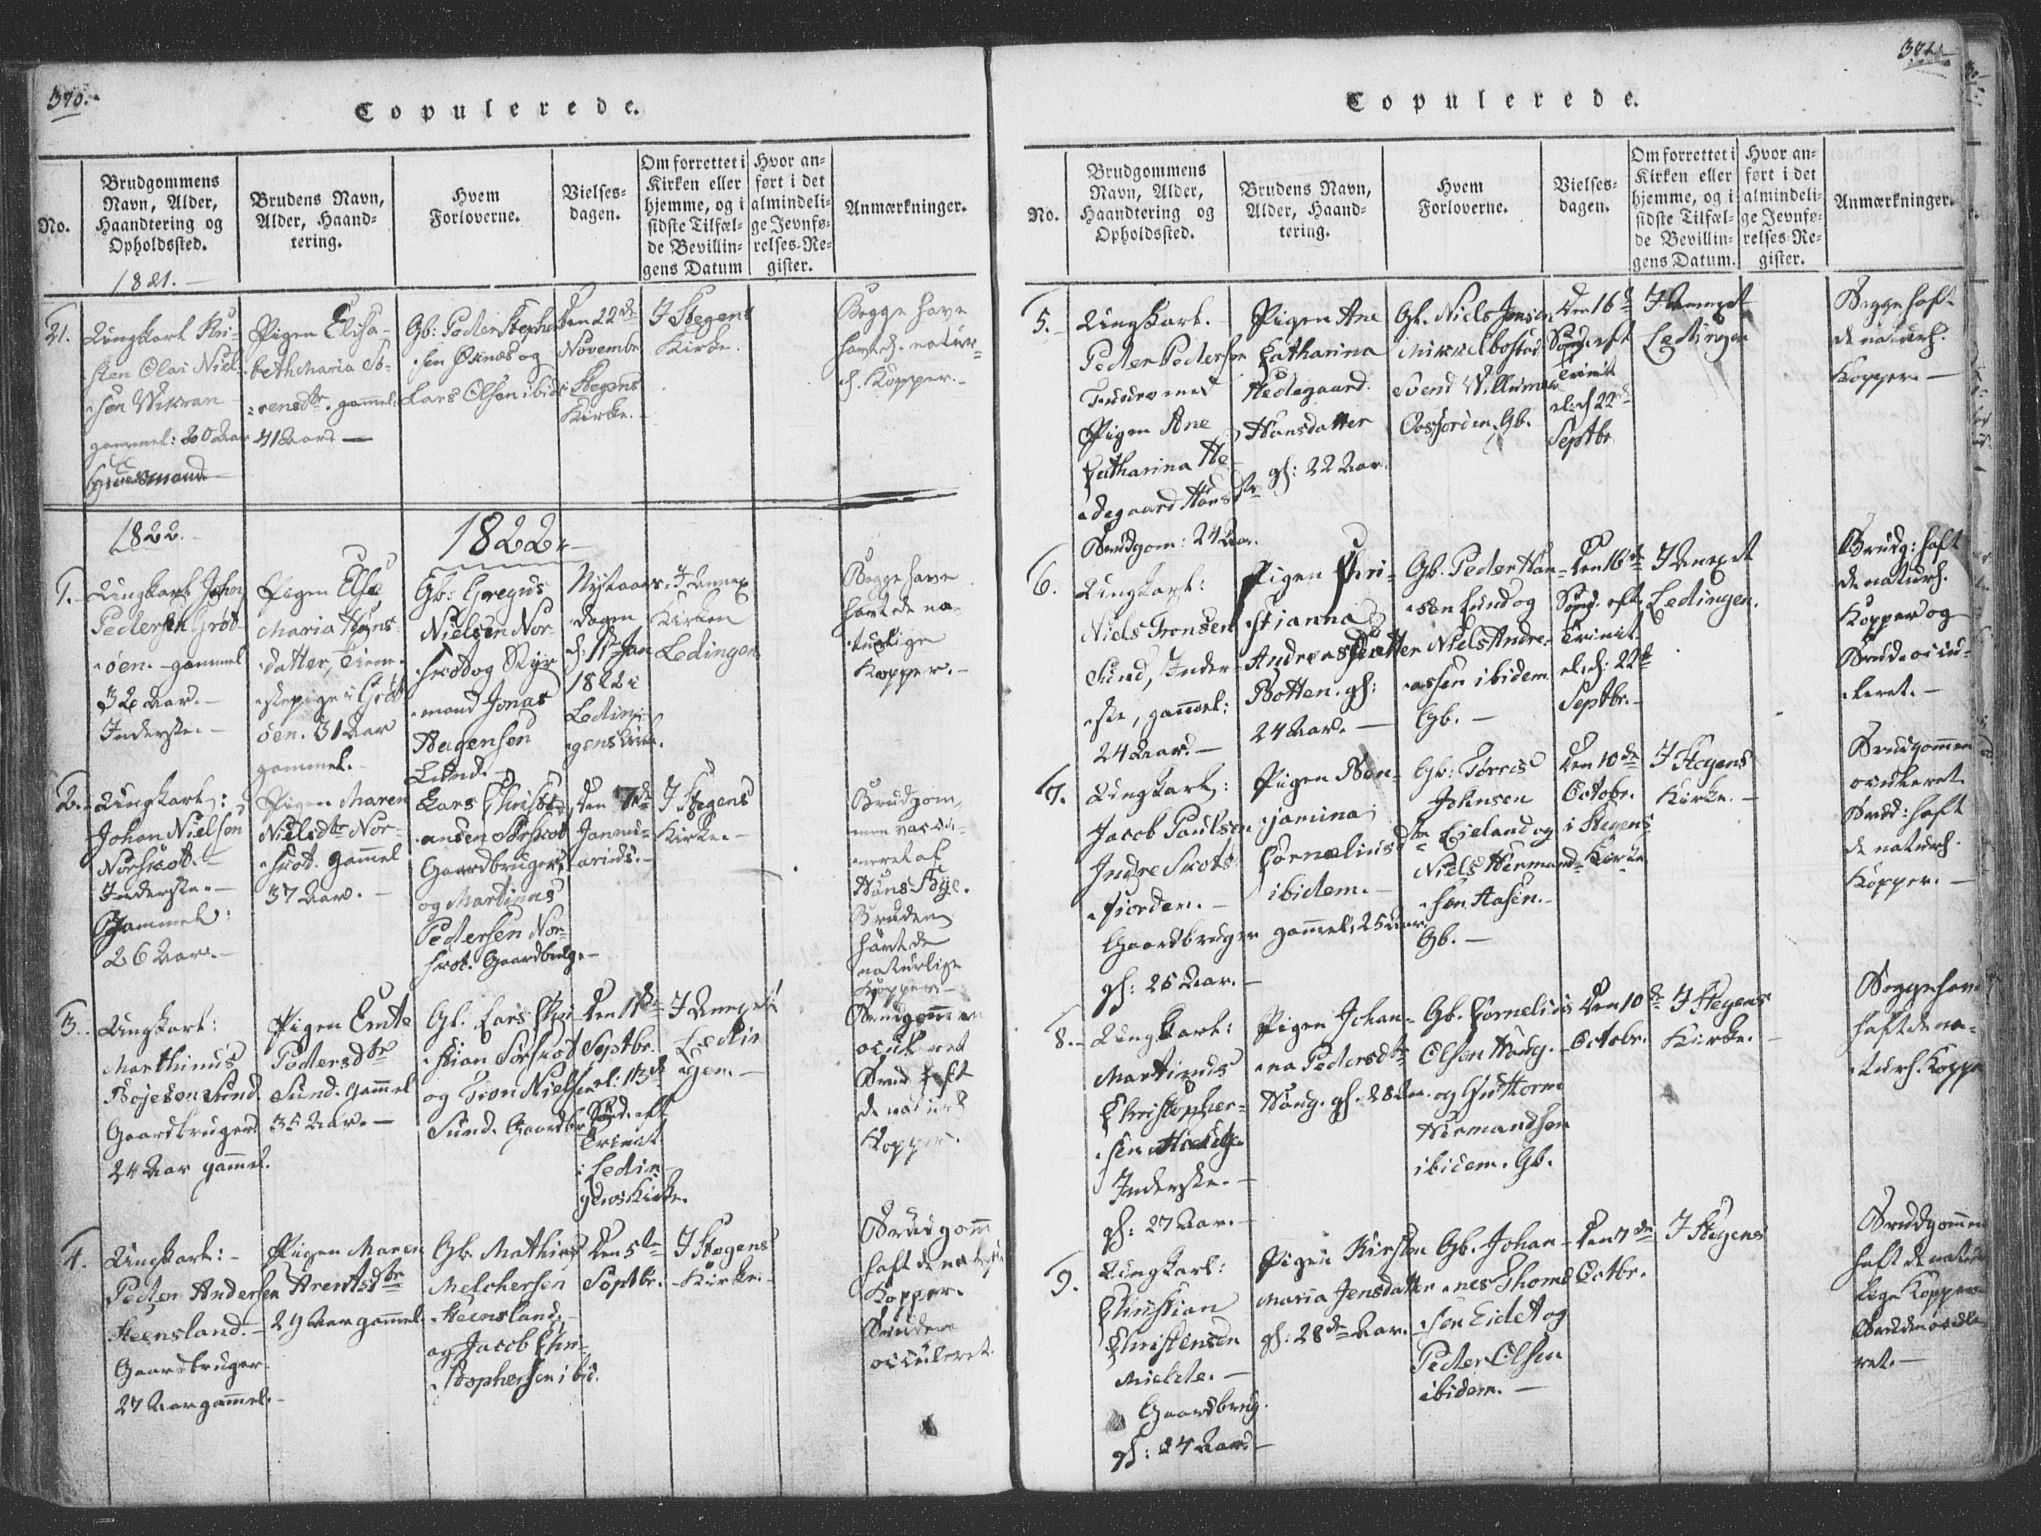 370.
Copulerede.
No.
Brudgommens
Navn, Alder,
Haandtering og
Opholdssted.
Brudens Navn,
Alder, Haand-
tering.
Hvem
Forloverne.
Vielses-
dagen.
Om forrettet i
Kirken eller
hjemme, og i
sidste Tilfæl-
de Bevillin-
gens Datum
Hvor an-
ført i det
almindeli-
ge Jevnfø-
relses-Re-
gister.
Anmærkninger.
1821.
21.
Ungkarl
sten Olai Niel-
sen Wikran
gammel: 20 Aar
Huusmand
Pigen Elisa-
beth Maria So-
rensdtr. gammel:
41 Aar. —
Gb: Peder Steph
sen Øxnæs og
Lars Olsen ibid:
Den 22de
Novembr
i Stegens
Kirke. —
I Stegens
Kirke.
Begge have
havt d. natur-
l. Kopper. —
1822. —
1822. —
1.
Ungkarl John
Pedersen Gröt-
öen. gammel
32 Aar. —
Inderste. —
Pigen Else
Maria Hans-
datter, Tiene-
stepige i Gröt-
öen. 31 Aar
gammel. —
Gb: Gregus
Nielsen Nor-
skot og Styr-
mand Jonas
Hagensen
Lund. —
Nytaars-
dagen
d: 1st Jan
1822 i
Ledin-
gens Kirke.
I Annex
Kirken
Ledingen
Begge have
havt de na-
turlige
Kopper. —
2.
Ungkarl:
Johan Nielsen
Norskot. —
Inderste. —
Gammel:
26 Aar. —
Pigen Maren
Nielsdtr Nor-
skot. Gammel
37 Aar. —
Lars Christi-
ansen Sörskot
Gaardbruger,
og Martinus
Pedersen Nor-
skot. Gaardbrug. —
Den 7de
Janu-
arius. —
I Stegens
Kirke. —
Brudgom-
men vacci-
neret af
Hans Föye.
Bruden
havt de
naturlige
Kopper —
3.
Ungkarl:
Marthinus
Böjesen Sund.
Gaardbruger.
24 Aar gammel.
Pigen Emte
Pedersdtr
Sund. gammel
35 Aar. —
Gb. Lars Chri-
stian Sörskot
og Tron Nielsen
Sund. Gaardbr.
Den 1ste
Septbr.
el: 13de
Sönd. eft
Trinit
i Ledin-
gens Kirke.
I Annexet
Ledin-
gen. —
Brudgommen
occuleret
Brud haft
de naturl
Kopper.
4.
Ungkarl: —
Peder Andersen
Steensland. —
Gaardbruger
27 Aar gammel. —
Pigen Maren
Arentsdtr
29 Aar gammel
Gb. Mathias
Melchersen
Steensland. —
og Jacob Chri-
stophersen ibid.
Den 5te
Septbr.
I Stegens
Kirke. —
Brudgomm
haft de naturl
Kopper.
Bruden
occuleret.
371.
Copulerede.
No.
Brudgommens
Navn, Alder,
Haandtering og
Opholdssted.
Brudens Navn,
Alder, Haand-
tering.
Hvem
Forloverne.
Vielses-
dagen.
Om forrettet i
Kirken eller
hjemme, og i
sidste Tilfæl-
de Bevillin-
gens Datum.
Hvor an-
ført i det
almindeli-
ge Jevnfø-
relses-Re-
gister.
Anmærkninger.
5.
Ungkarl.
Peder Pedersen
med
Pigen Ane
Catharina He-
degaard Hansdtr
Brudgom: 24 Aar.
Pigen Ane
Catharina
Hedegaard
Hansdatter
gl: 22 Aar.
Gb. Niels Jensen
Mikkelbostad
Svend Willumsen
Gb.
Den 16de
Sönd. eft
Trinit
el: d. 22de
Septbr
I Annexet
Ledingen
Begge haft
de naturl.
Kopper. —
6.
Ungkarl:
Niels Tronsen
Sund, Inder-
ste, gammel:
24 Aar. —
Pigen Chri-
stianna
Andreasdatter
Botten. gl:
24 Aar. —
Gb. Peder Han-
sen Lund og
Niels Andre-
assen ibidem
Gb. —
Den 16de
Sönd. eft.
Trinit.
el: d: 22de
Septbr. —
I Annexet
Ledingen.
Brudg: haft
de naturl.
Kopper og
Brude occu-
leret. —
7.
Ungkarl:
Jacob Paulsen
Indre Skots-
fjorden. —
Gaardbruger
gl: 25 Aar. —
Pigen Ben-
jamina
Corneliusdtr
ibidem. —
gammel: 25 Aar.
Gb: Torris
Johnsen
Eieland og
Niels Hermand-
sen Aasen. —
Gb. —
Den 10de
Octobr.
i Stegens
Kirke
I Stegens
Kirke. —
Brudgommen
occuleret
Brud: haft
de naturl.
Kopper. —
8. —
Ungkarl:
Martinus
Christopher-
sen
Inderste. —
gl: 27 Aar. —
Pigen Johan-
na Pedersdtr
Houg. gl. 28 Aar.
Gb. Cornelius
Olsen Houg. —
og Guttorm
Hermandsen
ibidem. Gb.
Den 10de
Octobr.
I Stegens
Kirke. —
Begge have
haft de na-
turl. Kopp
9.
Ungkarl:
Christian
Christensen
Mielde. —
Gaardbrug.
gl: 24 Aar. —
Pigen Kirsten
Maria Jensdatter
gl: 28de Aar.
Gb. Johan-
nes Thoms
sen Eidet og
Peder Olsen
ibidem. —
Den 17de
Octbr.
I Stegens
Brudgommen
haft de natur
lige Kopper
Bruden occule-
ret. —